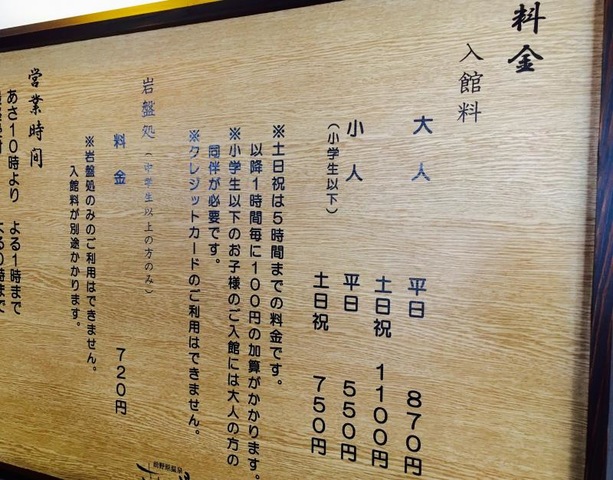 料金
入館料
大人
平日 870円
土日祝 1100円
小人
(小学生以下)
平日 550円
土日祝 750円
※土日祝は5時間までの料金です。
以降1時間毎に100円の加算がかかります。
※小学生以下のお子様のご入館には大人の方の
同伴が必要です。
※クレジットカードのご利用はできません。
岩盤処(中学生以上の方のみ)
料金 720円
※岩盤処のみのご利用はできません。
入館料が別途かかります。
営業時間
あさ10時より よる1時まで